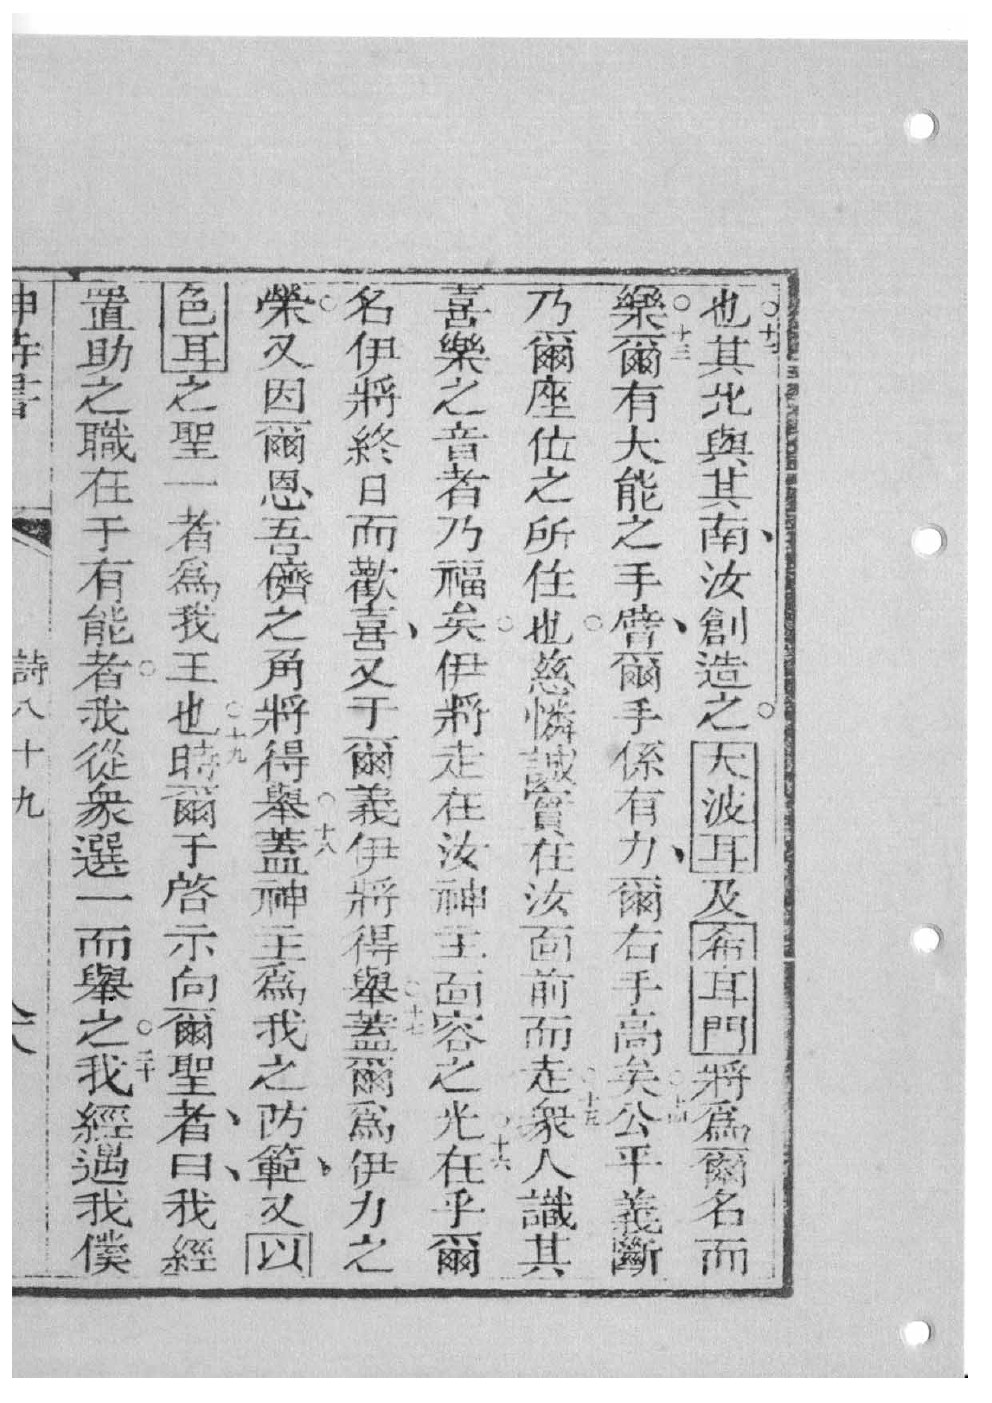 也○十二其北與其南、汝創造之○大波耳及希耳門將爲爾名而
樂○十三爾有大能之手臂、爾手係有力、爾右手高矣○十四公平義斷
乃爾座位之所住也○慈憐誠實在汝面前而走○十五衆人識其
喜樂之音者乃福矣○伊將走在汝神主面容之光在乎○十六爾
名伊將終日而歡喜、又于爾義伊將得舉○十七蓋爾爲伊力之
榮○又因爾恩吾儕之角將得舉○十八蓋神主爲我之防範、又以
色耳之聖一者爲我王也○十九時爾于啓示向爾聖者、曰、我經
置助之職在于有能者○我從衆選一而舉之○二十我經遇我僕
神詩書 詩八十九